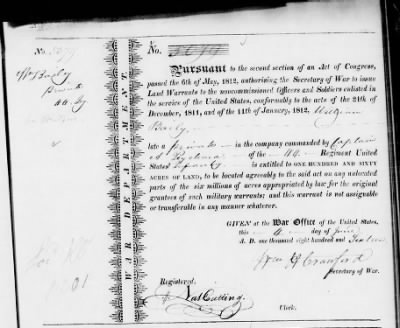 No.
Pursuant to the second section of an Act of Congress,
passed the 6th of May, 1812, authorising the Secretary of War to issue
Land Warrants to the noncommissioned Officers and Soldiers enlisted in
the service of the United States, conformably to the acts of the 24th of
December, 1811, and of the 11th of January, 1812, William
late a private in the company commanded by Captain
of the 44 Regiment United
States' Infantry is entitled to ONE HUNDRED AND SIXTY
ACRES OF LAND, to be located agreeably to the said act on any unlocated
parts of the six millions of acres appropriated by law for the original
grantees of such military warrants; and this warrant is not assignable
or transferable in any manner whatever.
GIVEN at the War Office of the United States,
this 4 day of june
A. D. one thousand eight hundred and Sixteen
Wm H Crawford
Secretary of War.
Registered.
Clerk.
WAR DEPARTMENT.